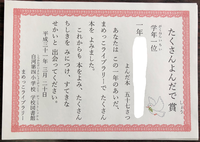 たくさんよんだで賞
学年一位
よんだ本 五十七さつ
一年
あなたは この一年のあいだ、
まめっこライブラリーで たくさん
本を よみました。
これからも 本をよみ、たくさん
ちしきを みにつけ、すてきな
せかいと 出会ってください。
平成三十一年 三月二十日
白河第四小学校 学校図書館
まめっこライブラリー